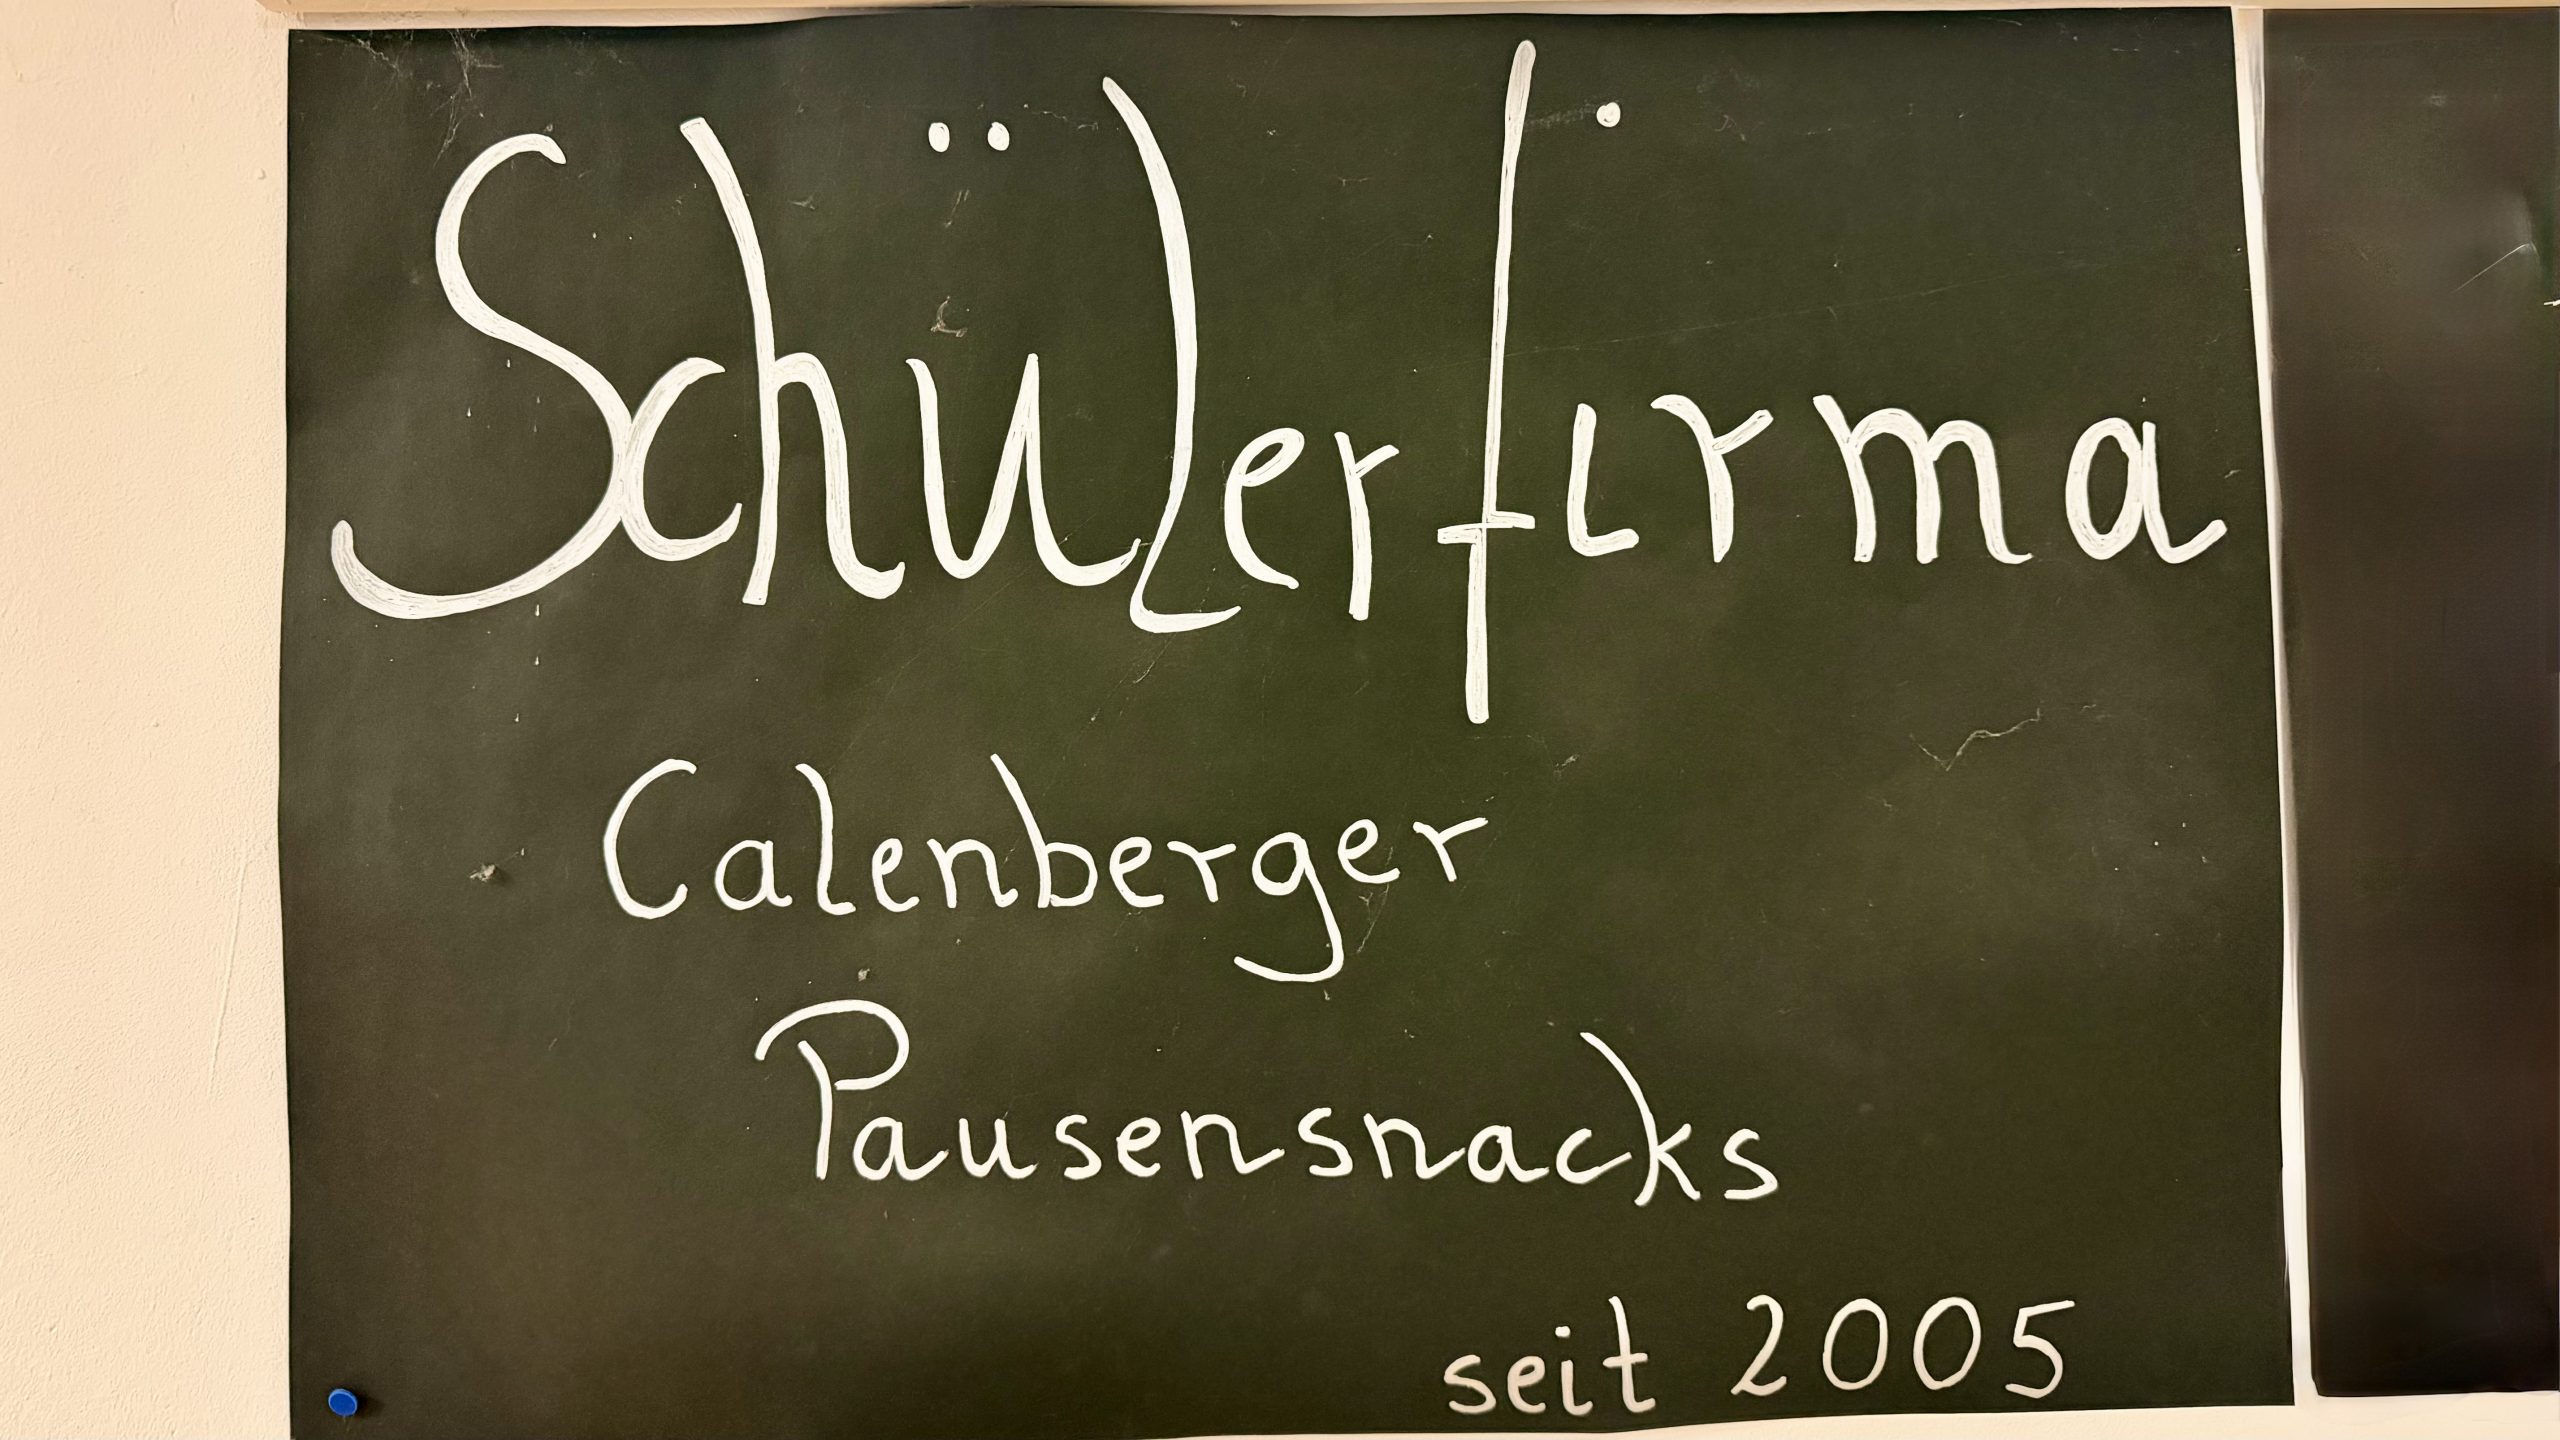 Schülerfirma
Calenberger
Pausensnacks
seit 2005